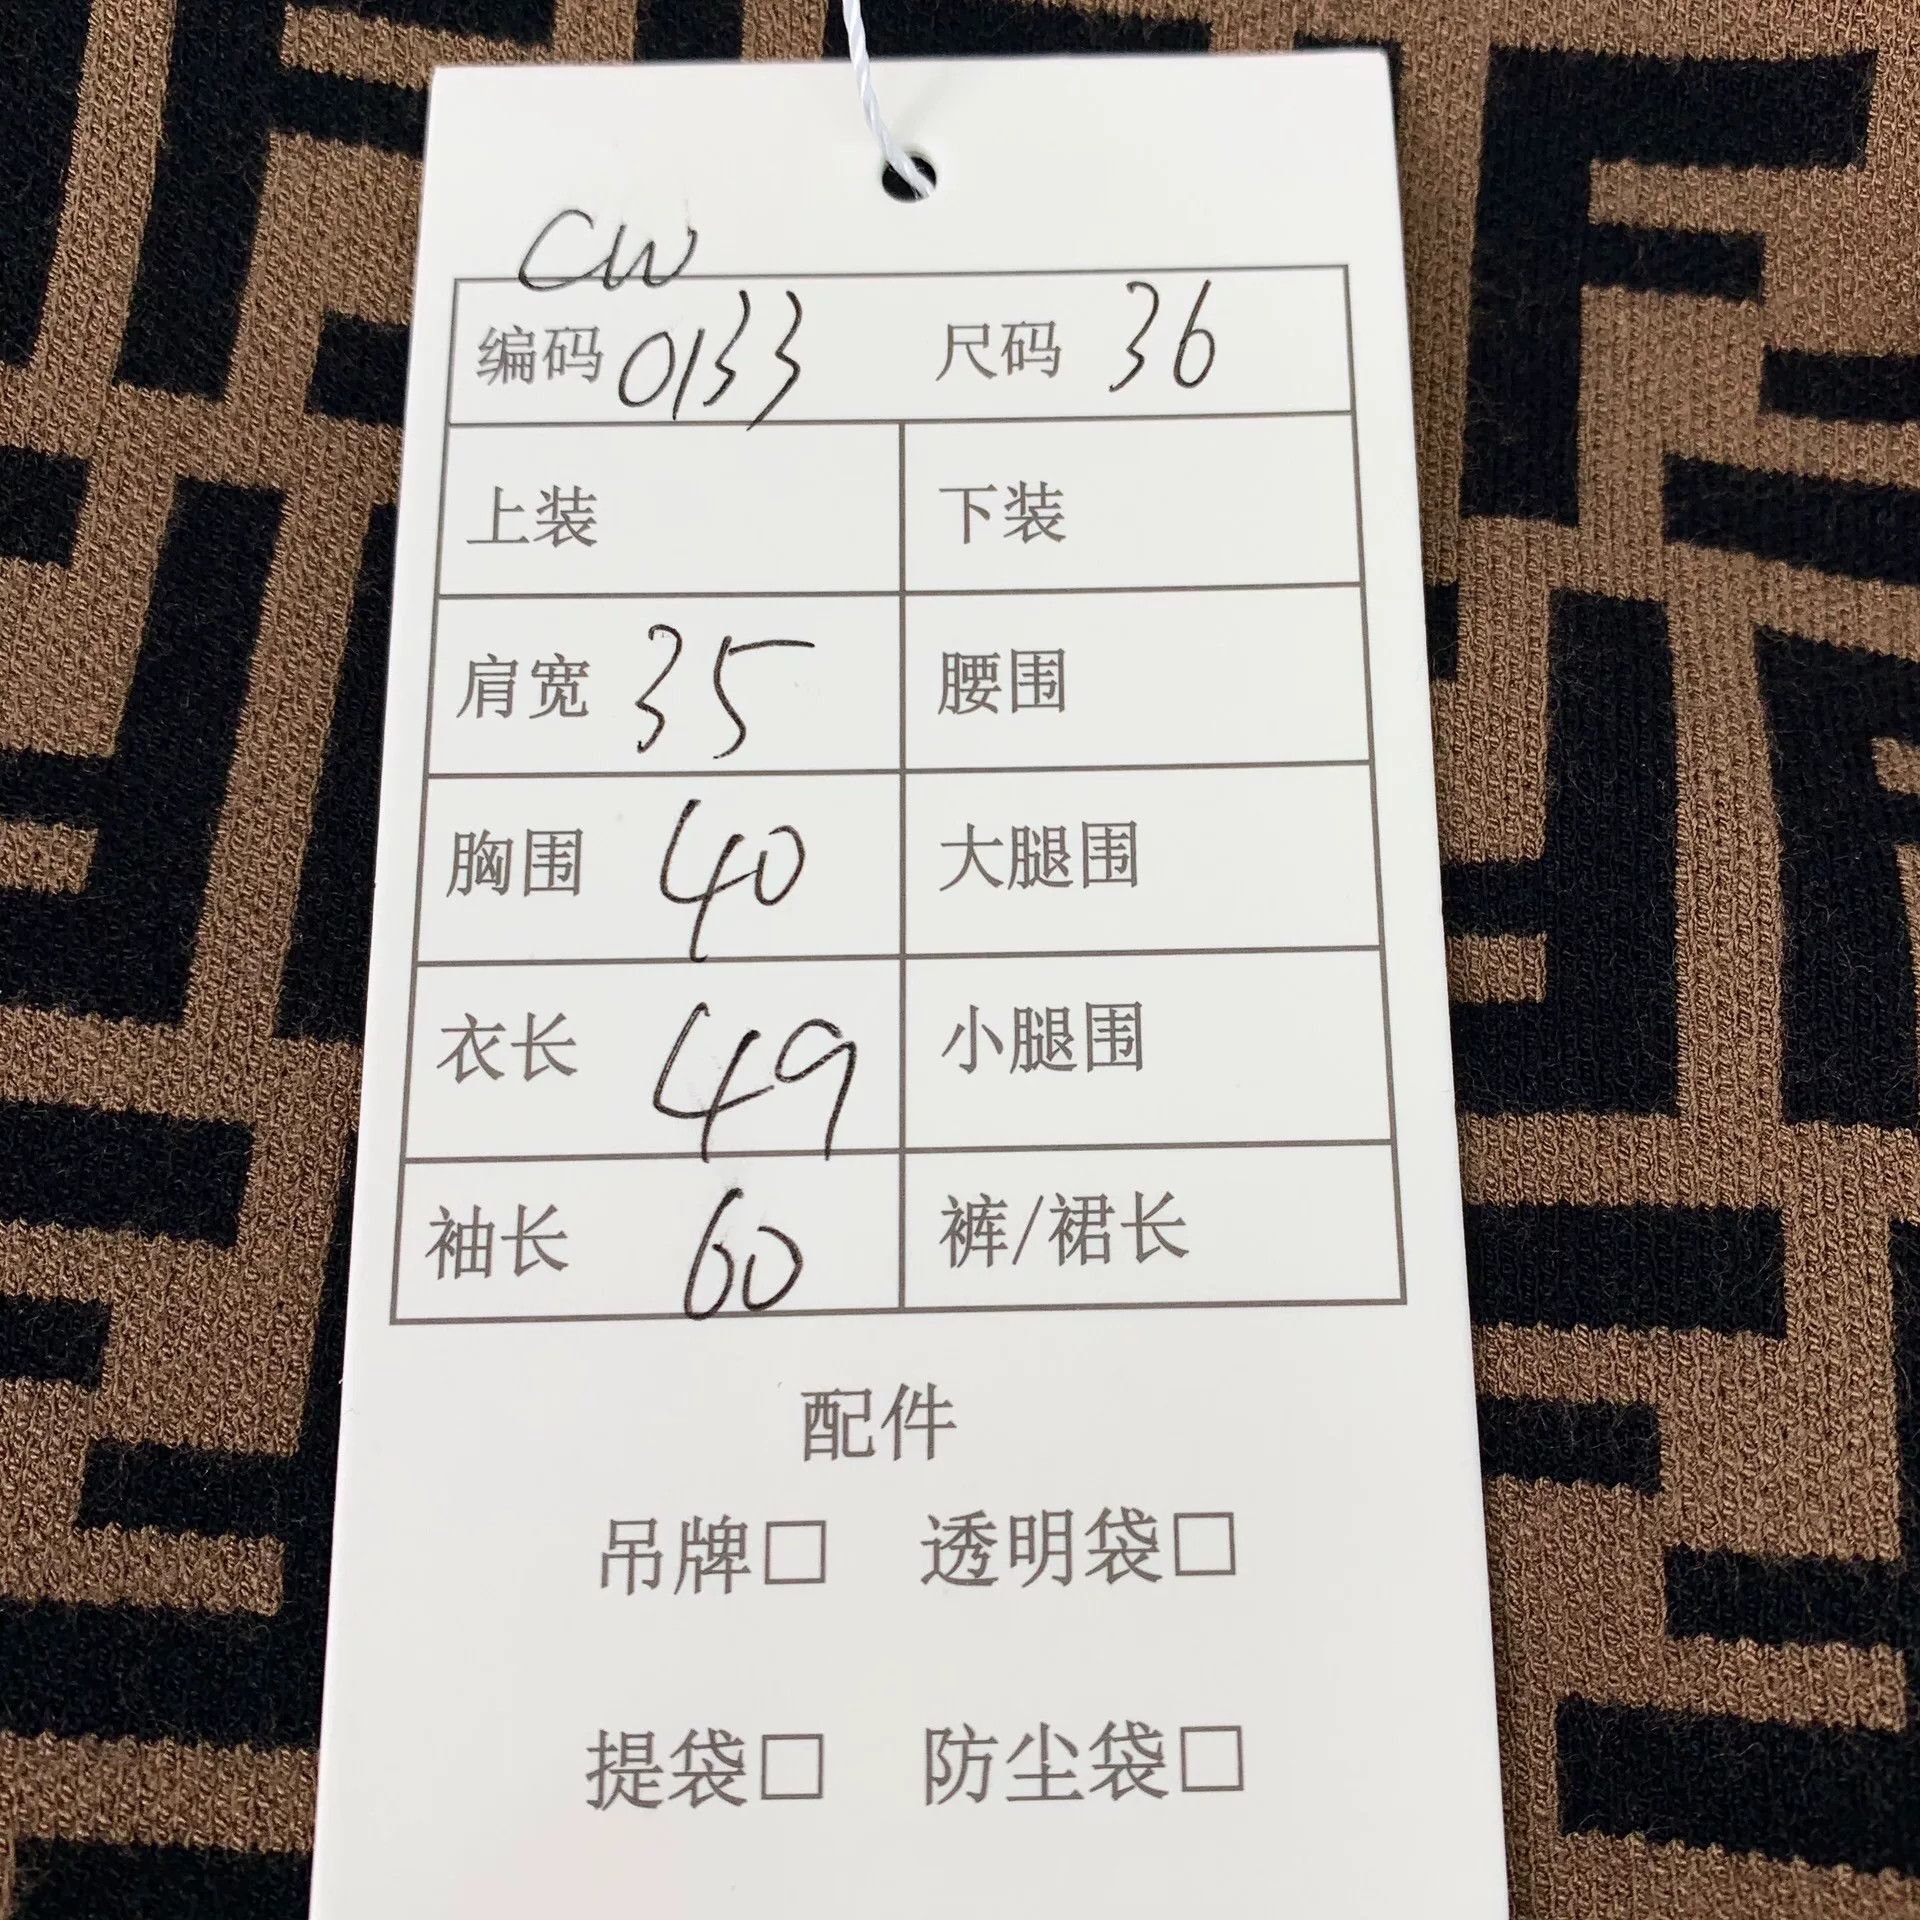 CW
编码 0133 尺码 36
上装 下装
肩宽 35 腰围
胸围 40 大腿围
衣长 49 小腿围
袖长 60 裤/裙长
配件
吊牌□ 透明袋□
提袋□ 防尘袋□